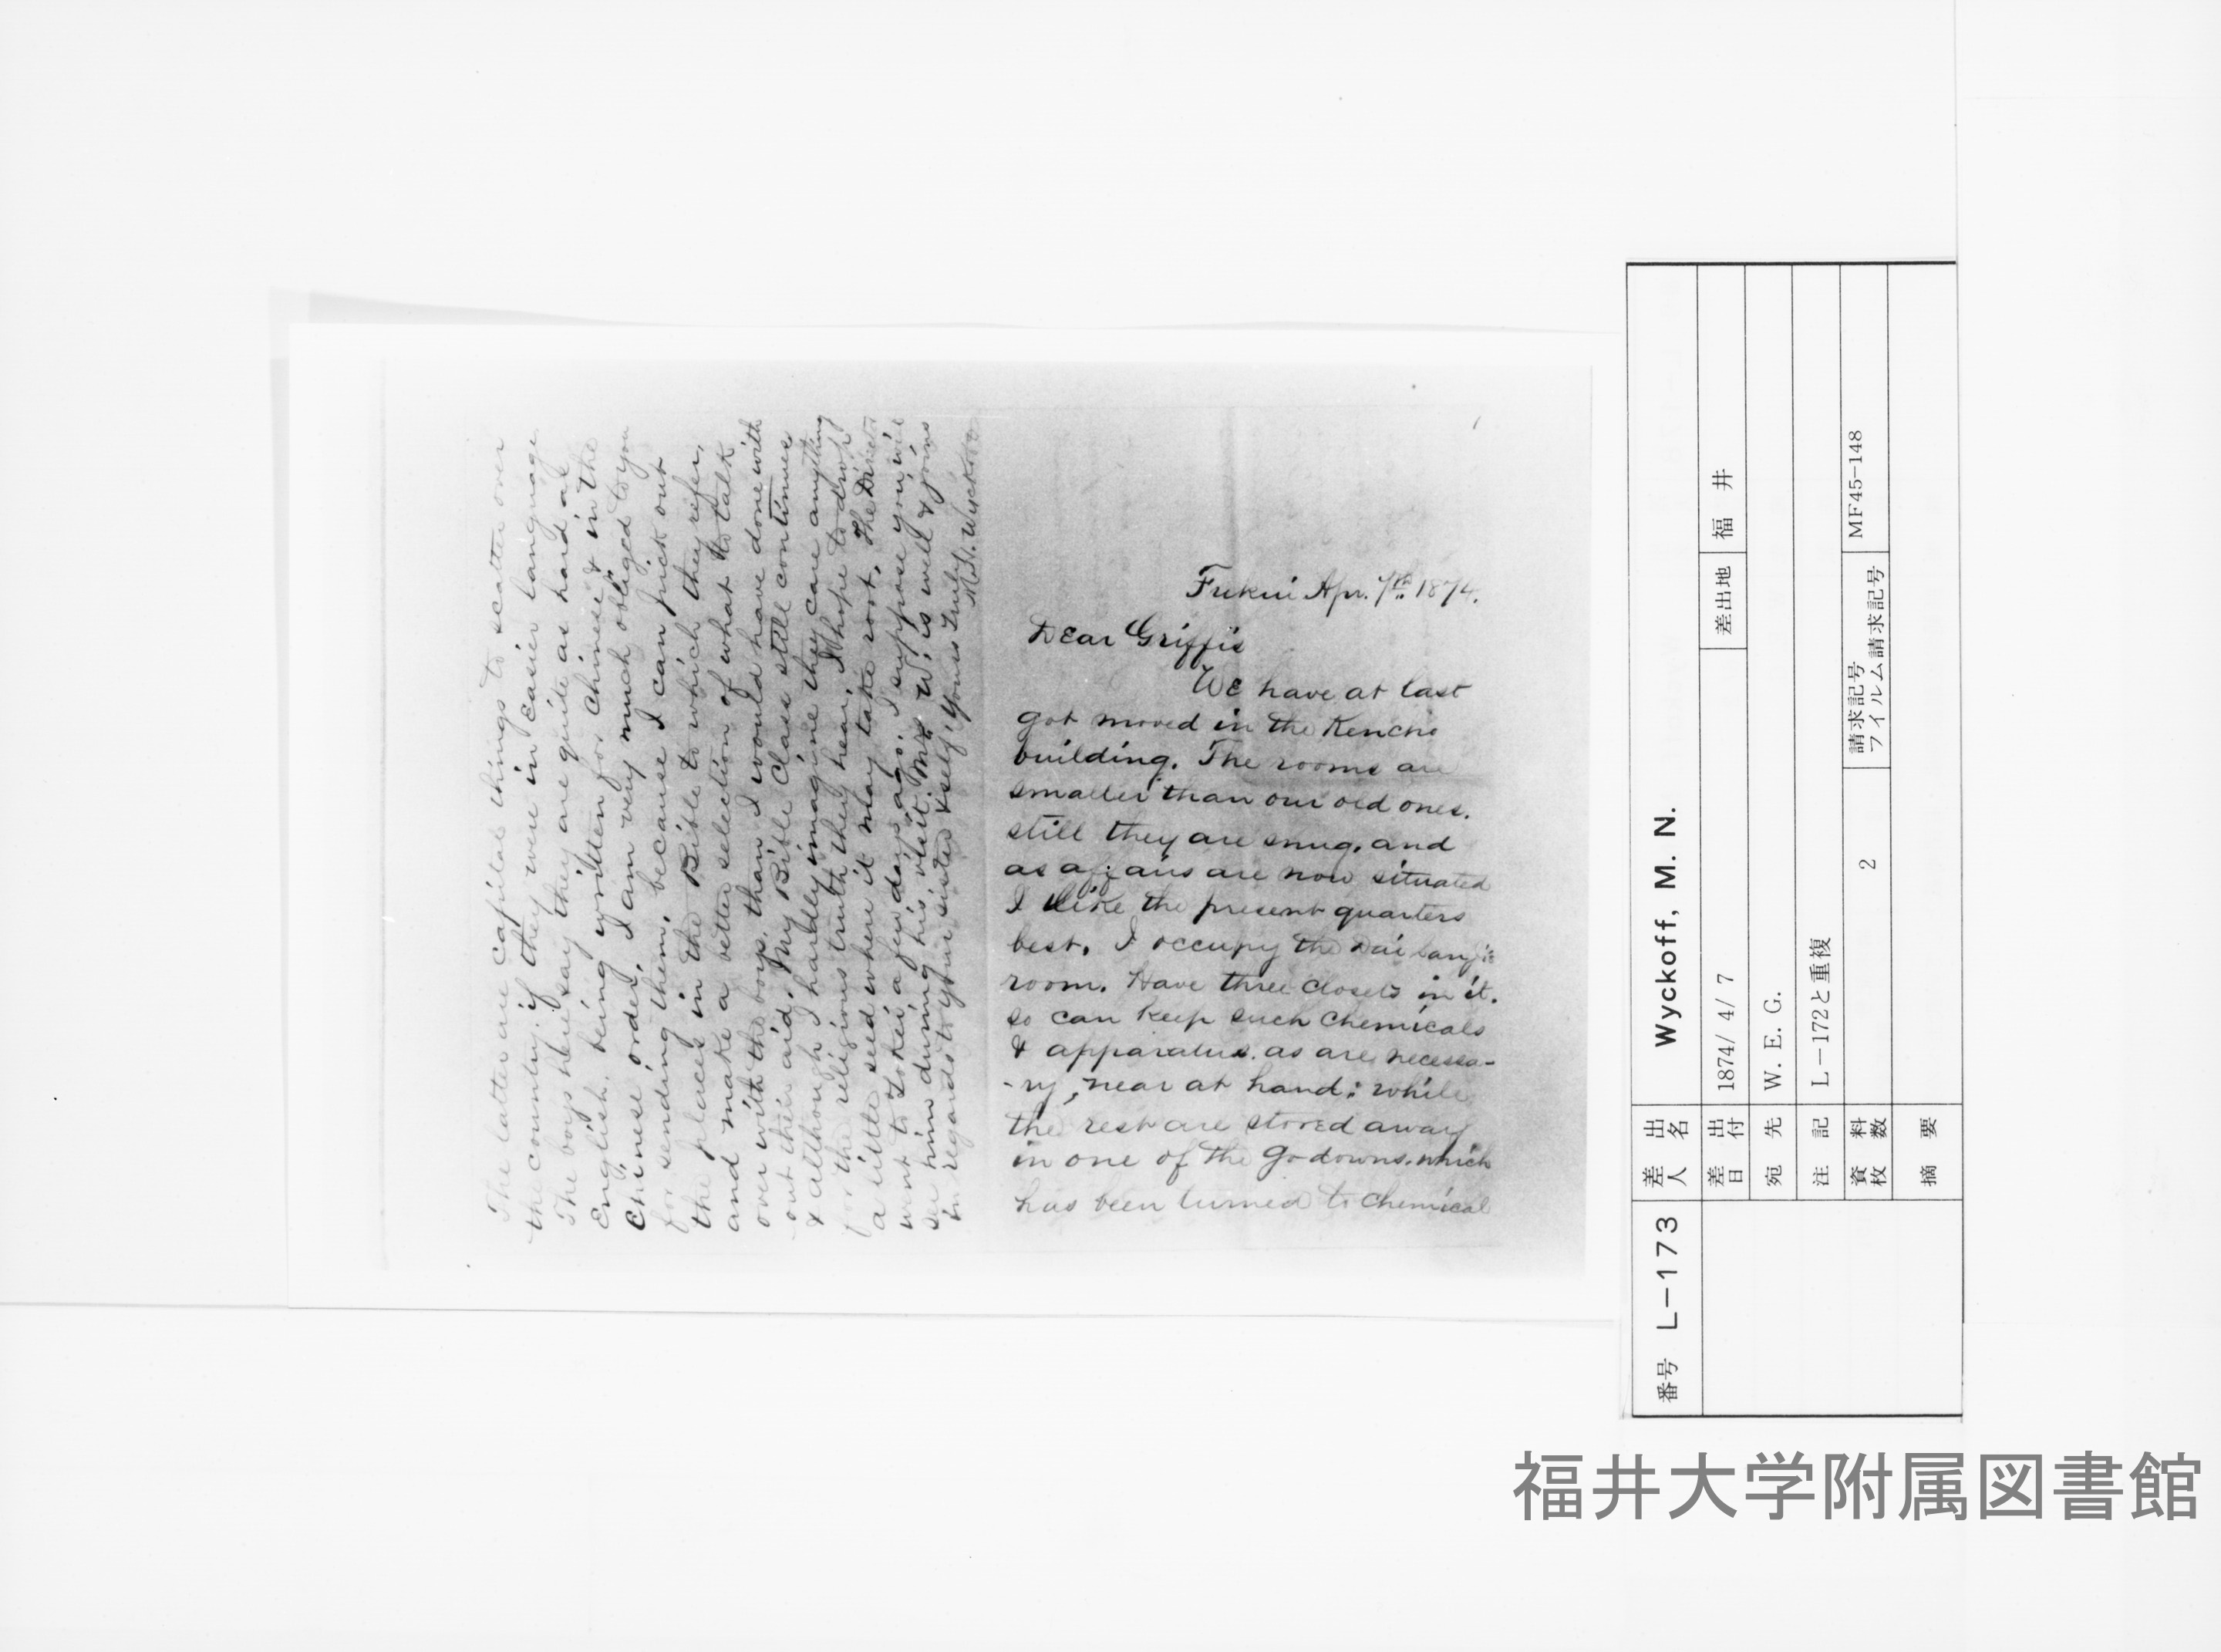 Fukui Apr. 7th 1874.
Dear Griffis
We have at last
got moved in the Kencho
building. The rooms are
smaller than our old ones.
still they are snug, and
as affairs are now situated
I like the present quarters
best. I occupy the Dai
room. Have three closets in it.
so can keep such chemicals
& apparatus as are necessa-
-ry, near at hand: while
the rest are stored away
in one of the Go-downs. which
has been turned to chemical
The latter are capital things to scatter over
the country, if they were in easier language
The boys here say they are quite as hard as
English, being written for Chinese & in the
Chinese order. I am very much obliged to you
for sending them, because I can pick out
the places in the Bible to which they refer,
and make a better selection of what to talk
over with the boys, than I would have done with
out their aid. My Bible Class still continues
& although I hardly imagine they care anything
for the religious truth they hear, I hope to drop
a little seed where it may take root. The
went to Tokei a few days ago. I suppose you will
see him during his visit. Mrs W. is well & joins
in regards to your sister & self, Yours Truly
M. N. Wyckoff
番号 L-173
差出人名 Wyckoff, M. N.
差出日付 1874/ 4/ 7 差出地 福 井
宛先 W. E. G.
注記 L-172と重複
資料枚数 2 請求記号 フイルム請求記号 MF45-148
摘要
福井大学附属図書館